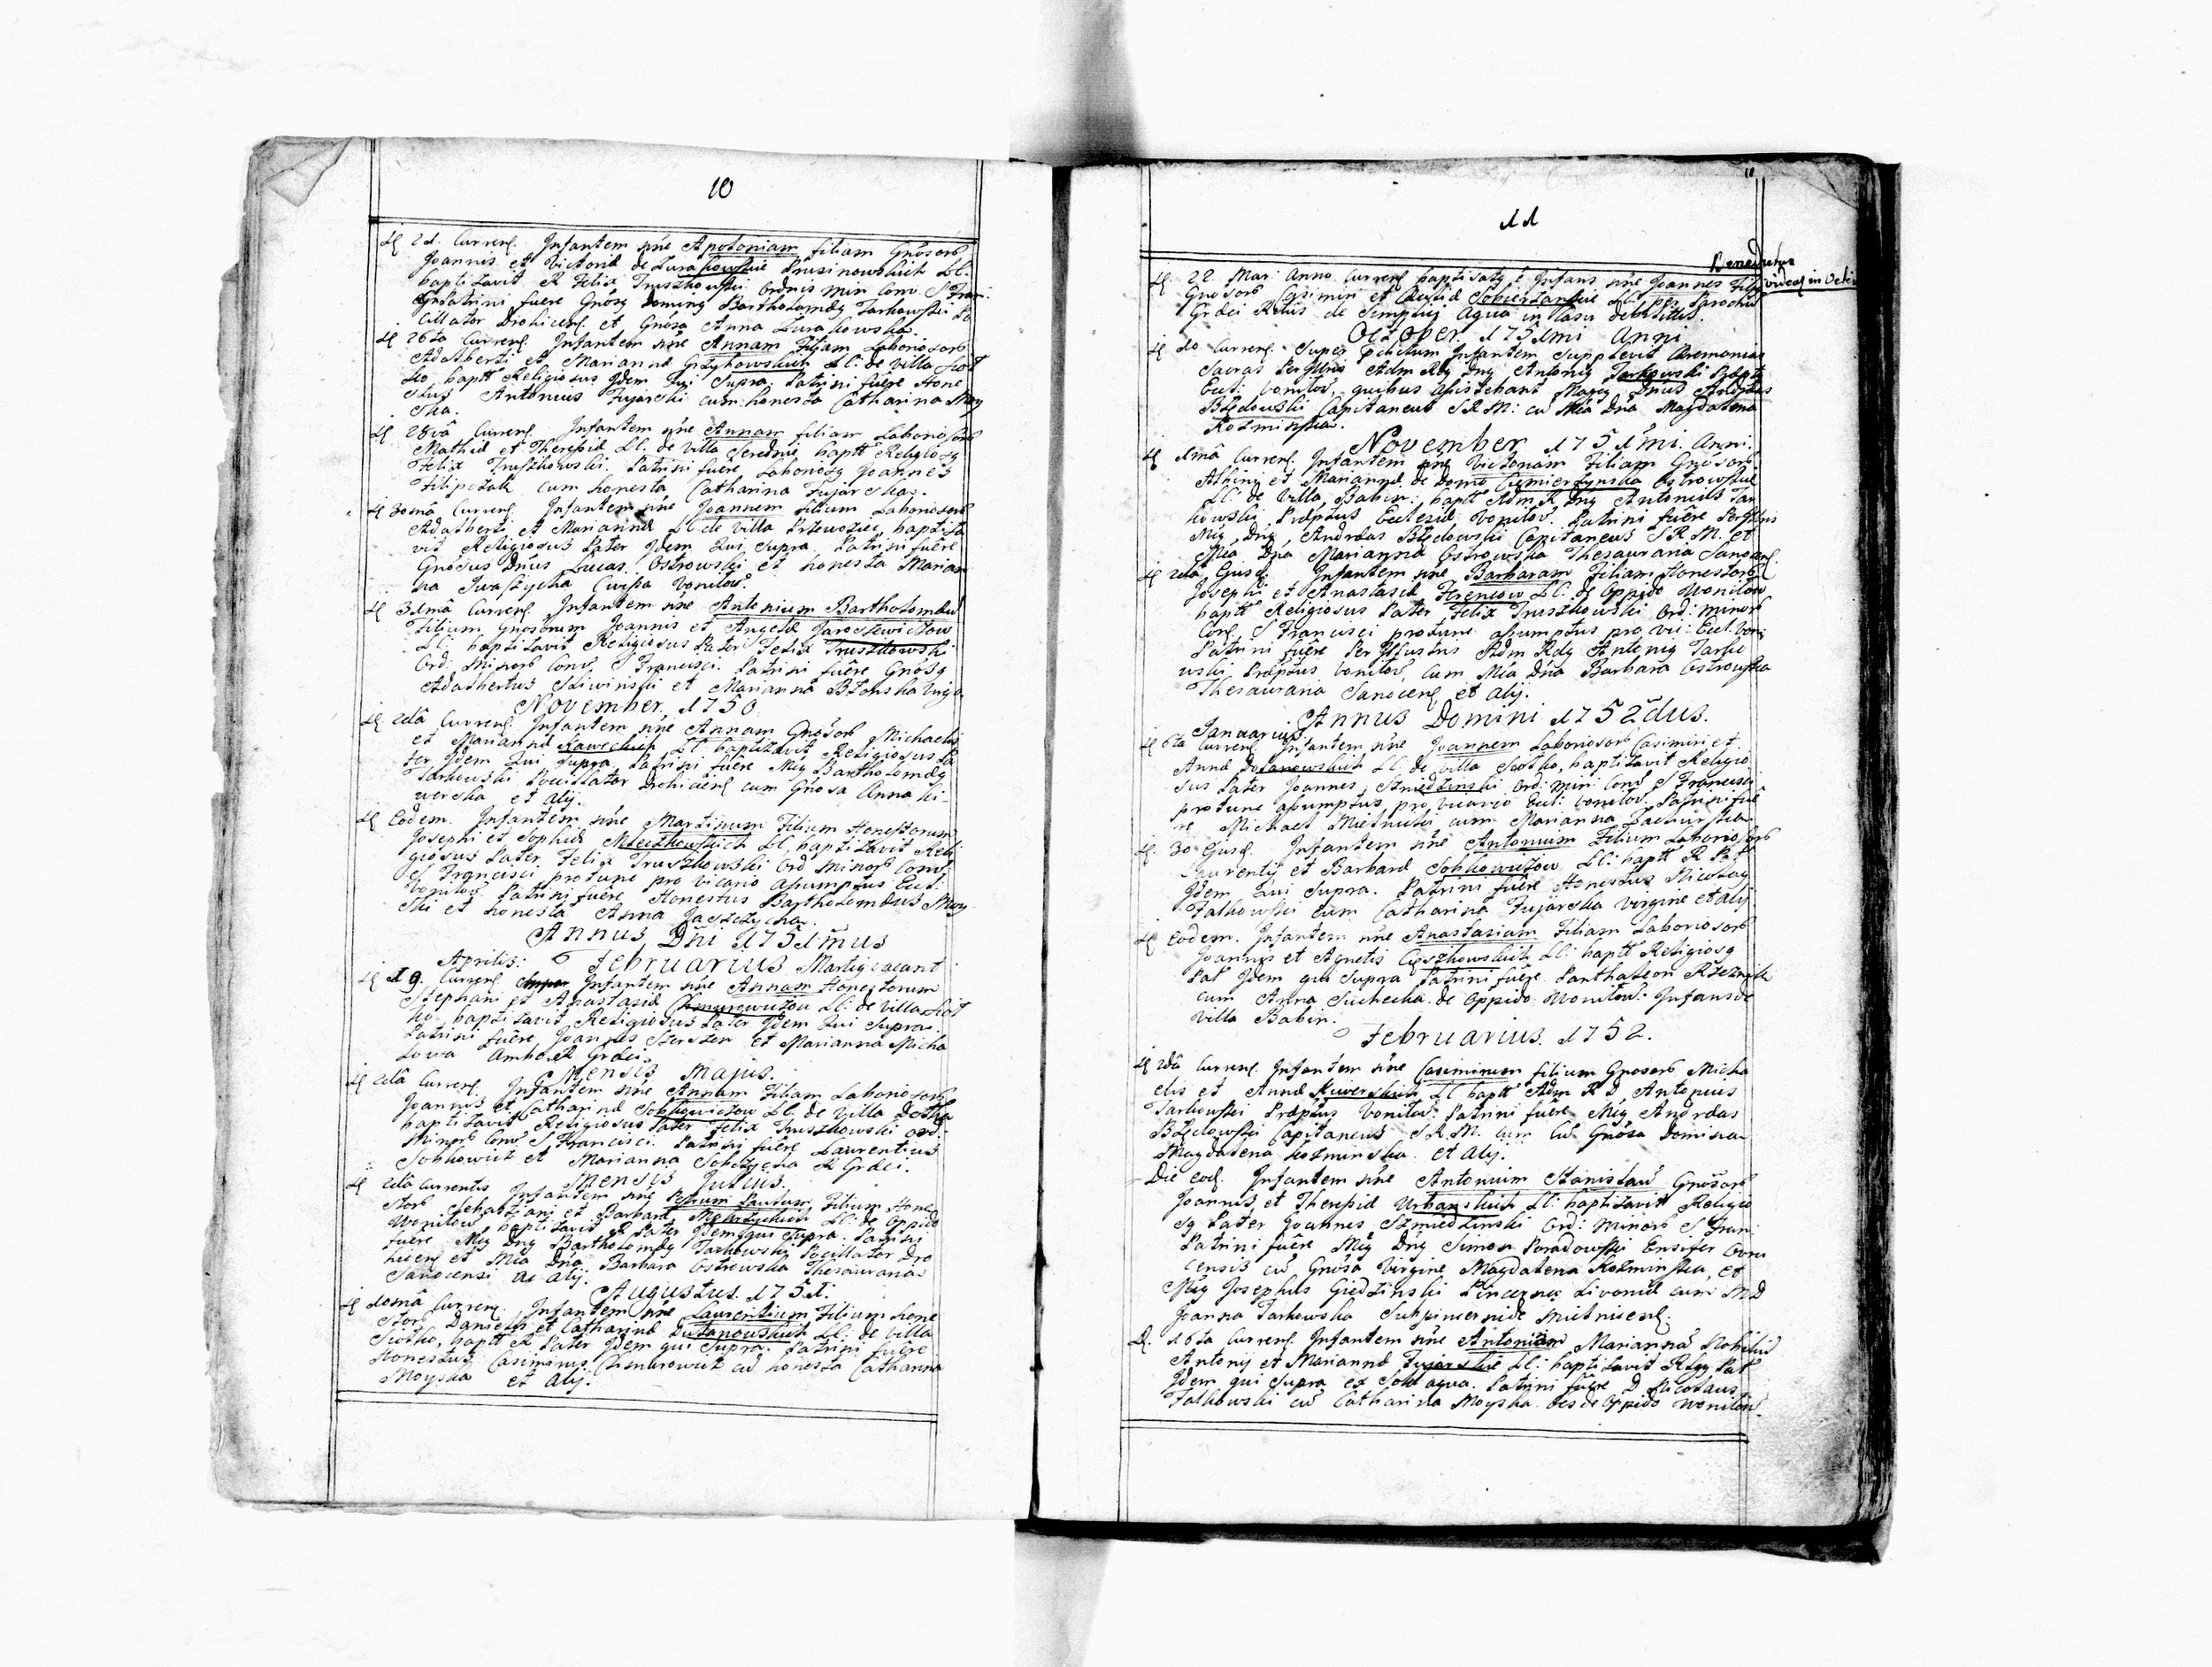 10
D 21. Curren. Infantem nne Apoloniam filiam Gnosorb
Joannis et Victoriæ de Zurakowskie Prusinowskich LC.
baptizavit R Felix Truszkowski Ordnis Min Conv. S Fran:
Patrini fuere Gnosq Dominq Bartholomæq Tarkowski Po
cillator Drohicen. et Gnosa Anna Zurakowska.
D 26ta Curren. Infantem nne Annam Filiam Laboriosorb
Adalberti et Mariannæ Grzybowskich LC: de villa Siot
ko, baptt Religiosus Idem Qui Supra. Patrini fuêre Hone
stus Antonius Fujarski cum honesta Catharina Moy
ska.
D 28vâ Curren. Infantem nne Annam filiam Laboriosorb
Mathiæ et Theresiæ LC. de Villa Serednie, baptt Religiosq
Felix Truszkowski. Patrini fuêre, Laboriosq Joannes
Filipczak cum honesta Catharina Fujarska.
D 30mâ Curren. Infantem nne Joannem filium Laboriosorb
Adalberti et Mariannæ LC de Villa Przewoziec, baptiza
vit Religiosus Pater Idem Qui Supra, Patrini fuêre
Gnosus Dnus Lucas Ostrowski et honesta Marian
na Iwaszycha Civissa Vonilov.
D 31mâ Curren. Infantem nne Antonium Bartholomæu
Filium Gnosorum Joannis et Angelæ Jaroszewiczow
LC. baptizavit Religiosus Pater Felix Truszkowski
Ord: Minorb Conv. S Francisci. Patrini fuêre Gnosq
Adalbertus Sliwinski et Marianna Blonska Virgo
November. 1750
D 2dâ Curren. Infantem nne Annam Gnosorb Michaelis
et Mariannæ Kaweckich LC baptizavit Religiosus Pa
ter Idem Qui Supra, Patrini fuêre Mgq Bartholomæq
Tarkowski Pocillator Drohicen. cum Gnosa Anna Ki-
werska et Alij.
D Eodem. Infantem nne Martinum Filium Honestorum
Josephi et Sophiæ Mleczkowskich LC, baptizavit Reli
giosus Pater, Felix Truszkowski Ord Minorb Conv.
S Francisci protunc pro Vicario assumptus Eccl:
Vonilov. Patrini fuêre Honestus Bartholomæus Moy
ski et honesta Anna Jaszczycha.
Annus Dni 1751mus
Aprilis: Februarius. Martiq vacant
D 19. Curren. Infantem nne Annam Honestorum
Stephani et Anastasiæ Chmurowiczow LC: de Villa Siot
ko baptizavit Religiosus Pater Idem Qui Supra.
Patrini fuêre, Joannes Szerszen et Marianna Micha
lowa Ambo R Græci.
Mensis Majus.
D 2dâ Curren. Infantem nne Annam Filiam Laboriosorb
Joannis et Catharinæ Sobkowiczow LC. de Villa
baptizavit Religiosus Pater Felix Truszkowski Ord.
Minorb Conv S Francisci. Patrini fuêre Laurentius
Sobkowicz et Marianna Sobczycha R Græci.
Mensis Julius.
D 2dâ Currentis Infantem nne Petrum Paulum, Filium Hone
storb Sebastiani et Barbaræ LC: de Oppido
Wonilow baptizavit R Pater Idem qui Supra. Patrini
fuêre Mgq Dnq Bartholomæq Tarkowski Pocillator Dro
hicen. et Mfa Dna Barbara Ostrowska Thesauraria
Sanocensi ac Alij.
Augustus. 1751.
D 10mâ Curren. Infantem nne Laurentium Filium Hone
storb Danielis et Catharinæ Dulanowskich LC: de Villa
Siotko, baptt R Pater Idem qui Supra. Patrini fuêre
Honestus Casimirus Chmurowicz cũ honesta Catharina
Moyska et Alij.
11
Benedictus
D 22 Mar: Anno Curren. baptisatq e Infans nne Joannes Filiq
Gnosorb Casimiri et LC; per Parochũ
Græci Ritus de Simplici Aqua in casu debilitatis.
October. 1751mi Anni
D 10 Curren. Super Infantem Supplevit Ceremonias
Sacras PerIllris Adm Rdq Dnq Antoniq Tarkowski Præpts
Eccl: Vonilov, quibus Assistebant Mgcq Dnus Andreas
Błędowski Capitaneus S R M: cũ Mfa Dna Magdalena
Kozminska.
November 1751mi. Anni.
D 1mâ Curren. Infantem nne Victoriam Filiam Gnosorb
et Mariannæ de Domo Ciemierzynska Ostrowskie
LC: de Villa Babin: baptt Adm R Dnq Antonius Tar
kowski, Præptus Ecclesiæ Vonilov. Patrini fuêre PerIllris
Mgq Dnq Andreas Błędowski Capitaneus S R M. et
Mfa Dna Marianna Ostrowska Thesauraria Sanocen.
D 2da Ejusd. Infantem nne Barbaram Filiam Honestorb
Josephi et Anastasiæ Ferencow LC. de Oppido Wonilow
baptt Religiosus Pater Felix Truszkowski Ord: Minorb
Con. S Francisci protunc assumptus pro vic: Eccl. Von:
Patrini fuêre PerIllustris Adm Rdq Antoniq Tarko
wski Præptus Vonilov, cum Mfa Dna Barbara Ostrowska
Thesauraria Sanocen. et Alij.
Annus Domini 1752dus.
Januarius.
D 6ta Curren. Infantem nne Joannem Laboriosorb Casimiri et
Annæ Dolanowskich LC: de villa Siotko, baptizavit Religio
sus Pater Joannes, Szmiedzinski Ord: Min: Conv S Francisci
protunc assumptus, pro vicario Eccl: Vonilov. Patrini fuê
re Michael Mielnicki cum Marianna
D. 30 Ejusd. Infantem nne Antonium Filium Laboriosorb
Laurentij et Barbaræ Sobkowiczow LC: baptt R Pat
Idem Qui Supra. Patrini fuêre Honestus Nicolaq
Falkowski cum Catharina Fujarska Virgine et Alij.
D Eodem. Infantem nne Anastasiam Filiam Laboriosorb
Joannis et Agnetis LC: baptt Religiosq
Pat Idem qui Supra Patrini fuêre Panthaleon Rzeznik
cum Anna Suchecka de Oppido Wonilow. Infans de
Villa Babin.
Februarius. 1752.
D 2dâ Curren. Infantem nne Casimirum filium Gnosorb Micha
elis et Annæ Kiwerskich LC baptt Adm R D, Antonius
Tarkowski Præptus Vonilov: Patrini fuêre Mgq Andreas
Błędowski Capitaneus S R M. cum Gnosa Domina
Magdalena Kozminska. et Alij.
Die eod. Infantem nne Antonium Stanislaũ Gnosorb
Joannis et Theresiæ Urbanskich LC: baptizavit Religio
sq Pater Joannes Szmiedzinski Ord: Minorb S Fran:
Patrini fuêre Mgq Dnq Simon Poradowski Ensifer Ovru
censis cũ Gnosa Virgine Magdalena Kozminska, et
Mgq Josephus Giedzinski Pincerna Livoniæ cum M D
Joanna Tarkowska Subpincernide Mielnicen.
D. 16ta Curren. Infantem nne Antoniam Mariannã Nobiliũ
Antonij et Mariannæ Fujarskie LC: baptizavit Rlgq Pat
Idem qui Supra ex Sola aqua. Patrini fuêre D Nicolaus
Falkowski cũ Catharina Moyska. Oes de Oppido Wonilow.